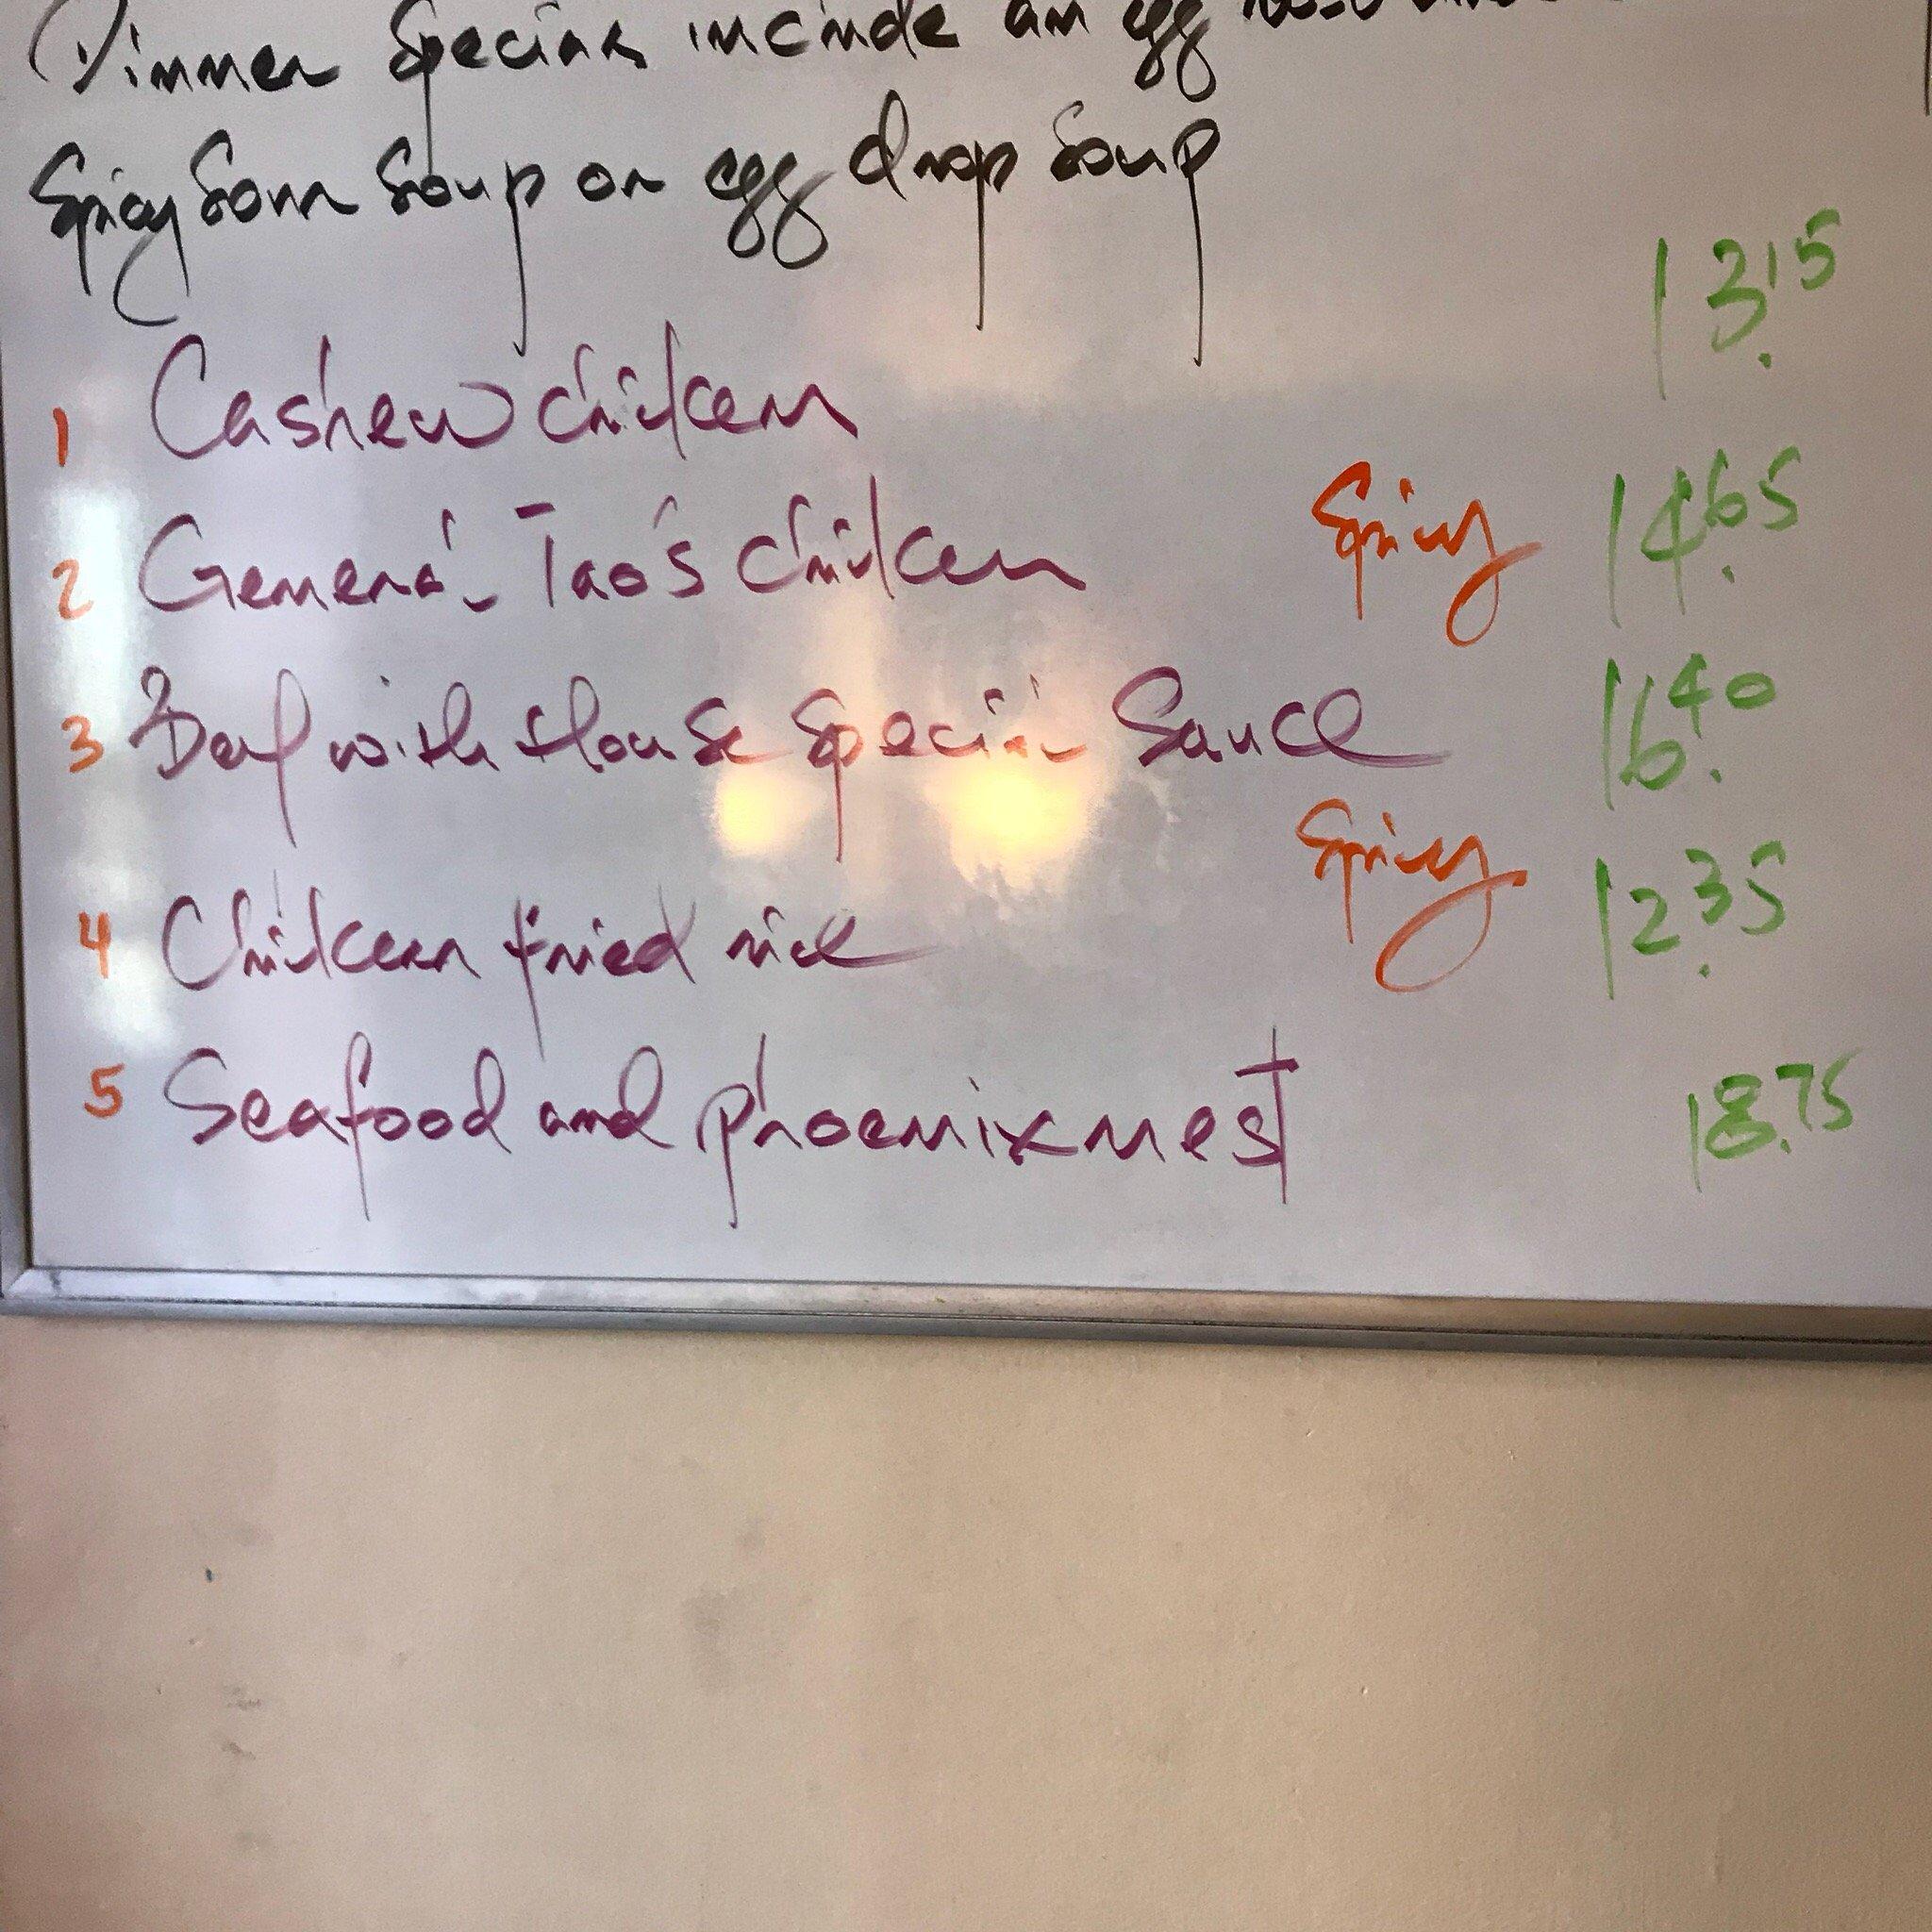 Dinner Specials include an egg
Spicy Sour Soup or egg drop Soup
1 Cashew chicken 13.15
2 General Tao's chicken Spicy 14.65
3 Beef with House Special Sauce 16.40
4 Chicken fried rice Spicy 12.35
5 Seafood and phoenix nest 18.75